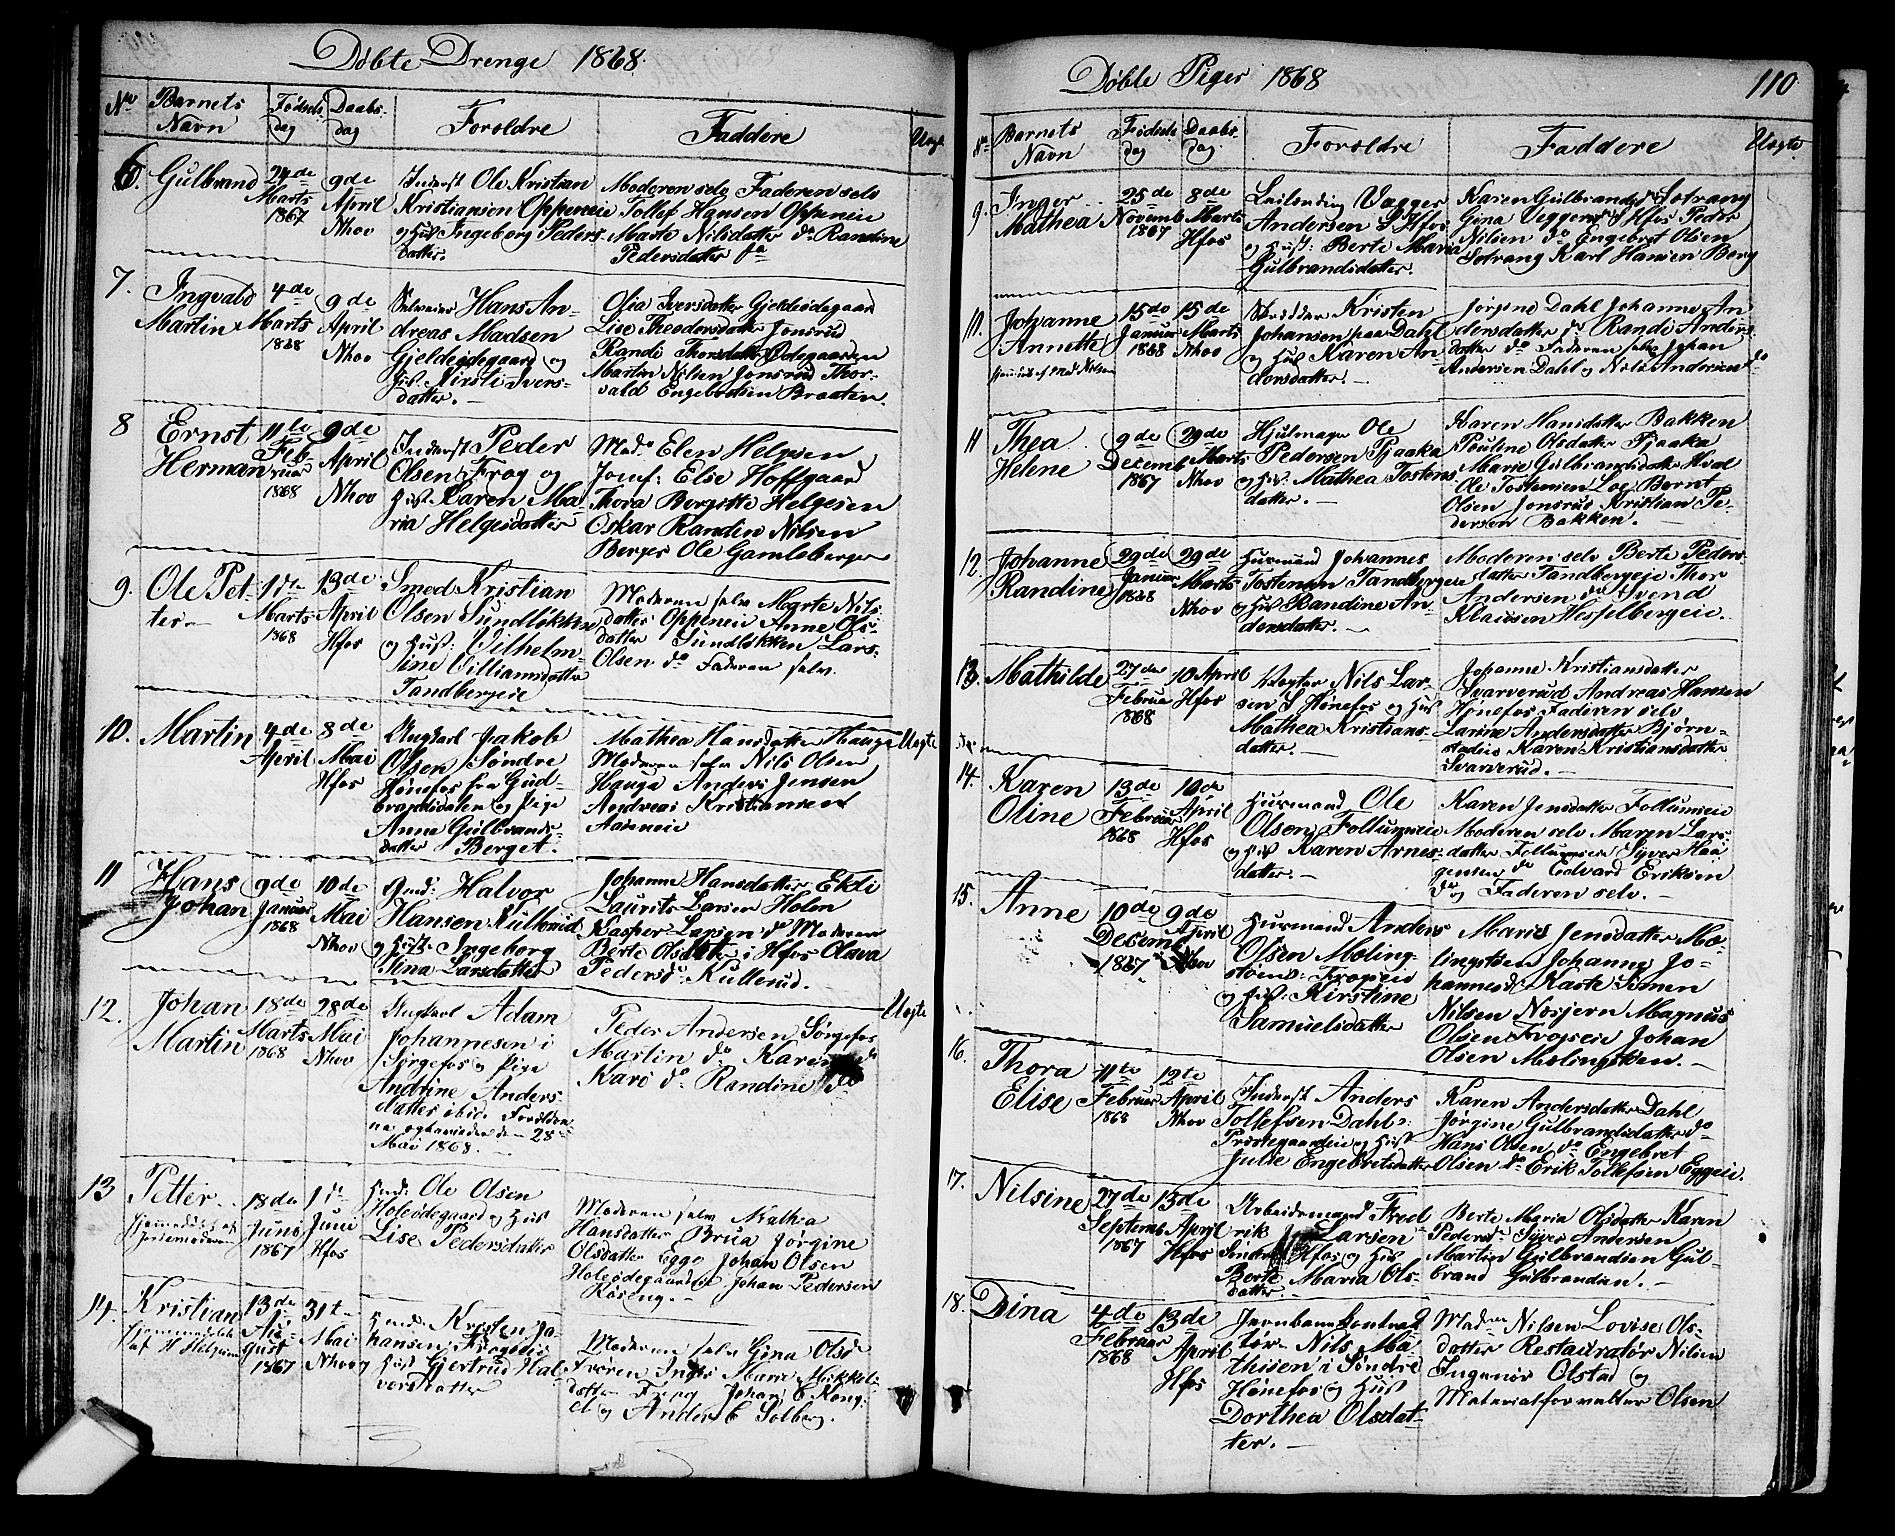 Døbte Drenge 1868.
No Barnets Navn Fødselsdag Daabsdag Forældre Faddere Uægt
6. Gulbrand 24de Marts 1867 9de April Nhov
Inderst Ole Kristian
Kristiansen Oppeneie
og Hust Ingeborg Peders
datter.
Moderen selv Faderen selv
Tollef Hansen Oppeneie
Marte Nilsdatter do Randine
Pedersdatter do
7. Ingvald Martin 4de Marts 1868 9de April Nhov
Hans An-
dreas Madsen
Gjeldeødegaard og
Hust. Kirsti Ivers-
datter.
Olia Iversdatter Gjeldeødegaard
Lise Theodorsdatter Jonsrud
Randi Thorsdatter Ødegaarden
Martin Nilsen Jonsrud Thor-
vald Engebretsen Braaten.
8 Ernst Herman 11te Februar 1868 9de April Nhov
Inderst Peder
Olsen Frog og
Hust. Karen Ma-
ria Helgesdatter
Mad. Elen Helgesen
Jomf: Elise Hoffgaard
Thora Borgitte Helgesen
Oskar Randin Nilsen
Berger Ole Gamleberger
9. Ole Petter 1ste Marts 1868 13de April Hfos
Smed Kristian
Olsen Sundløkken
og Hust: Vilhelm-
ine Villiamsdatter
Tandbergeie
Moderen selv Marte Nils-
datter Oppeneie Anne Ols-
datter Sundløkken Lars-
Olsen do Faderen selv.
10. Martin 4de April 8de Mai Hfos
Ungkarl Jakob
Olsen Søndre
Hønefos fra Gud-
brandsdalen og Pige
Anne Gulbrands-
datter Berget.
Mathea Hansdatter Hauga
Moderen selv Nils Olsen
Hauga Anders Jensen
Andreas Kristiansen
Aaseneie
Uægte
11 Hans Johan 9de Januar 1868 10de Mai Nhov
Gmd: Halvor
Hansen Kullerud
og Hust. Ingeborg
Lina Larsdatter
Johanne Hansdatter Ekli
Laurits Larsen Holen
Kasper Larsen do Moderen
Berte Olsdatter i Hfos Olava
Pedersdr. Kullerud.
12. Johan Martin 18de Marts 1868 28de Mai Nhov
Ungkarl Adam
Johannesen i
Sørgefos og Pige
Andrine Anders
datter ibid. Forældre-
ne egtevieden den 28
Mai 1868.
Peder Andersen Sørgefos
Martin do Karen do
Karo do Randine do
Uægte
13 Petter hjemmedøbt af Jordemoderen 18de Juni 1867 1ste Juni Hfos
Hmd: Ole Olsen
Holeødegaard og Hust
Lise Pedersdatter
Moderen selv Mathea
Hansdatter Brua Jørgine
Olsdatter Egge Johan Olsen
Holeødegaard Johan Pedersen
Roseng.
14. Kristian hjemmedøbt af H Helgesen 13de August 1867 31te Mai Nhov
Hmd: Kristen Jo-
hansen Frogseie
og Hust Gjertrud Hal-
vorsdatter
Moderen selv Gina Olsdr
Tvøren Inger Marie Mikkels-
datter Frog Johan E Kong-
el og Anders E Solberg.
Døbte Piger 1868 110
No Barnets Navn Fødselsdag Daabsdag. Forældre Faddere Uægte
9. Inger Mathea 25de Novemb 1867 8de Marts Hfos
Leilending Vegger
Andersen S Hfos
og Hust: Berte Maria
Gulbrandsdatter.
Karen Gulbrandsdr Sotrang
Gina Veggersdr Hfos Peder
Nilsen do Engebret Olsen
Sotrang Karl Hansen Berg
10. Johanne Annette hjemmedøbt af Mad Nilsen 15de Januar 1868 15de Marts Nhov
Skredder Kristen
Johansen paa Dahl
og Hust Karen An-
dersdatter.
Jørgine Dahl Johanne An
dersdatter do Randi Anders
datter do Faderen selv Johan
Andersen Dahl og Nils Andersen do
11 Thea Helene 9de Decemb 1867 29de Marts Nhov
Hjulmager Ole
Pedersen Pjaaka
og Hust: Mathea Tostens
datter.
Karen Hansdatter Bakken
Pauline Olsdatter Pjaaka
Marie Gulbrandsdatter Hval
Ole Tostensen Loe Bernt
Olsen Jonsrud Kristian Pe-
dersen Bakken.
12. Johanne Randine 29de Januar 1868 29de Marts Nhov
Husmand Johannes
Tostensen Tandbergeie
og Hust Randine An-
dersdatter.
Moderen selv Berte Peders-
datter Tandbergeie Thor
Andersen do Svend
Klausen Hesselbergeie.
13. Mathilde 27de Februar 1868 10 April Hfos
Nils Lar-
sen S Hønefos og Hust
Mathea Kristians-
datter.
Johanne Kristiansdatter
Svarverud Andreas Hansen
Hønefos Faderen selv
Larine Andersdatter Bjørn-
stadeie Karen Kristiansdatter
Svarverud.
14. Karen Oline 13de Februar 1868 10de April Hfos
Husmand Ole
Olsen Follumseie
og Hust Karen Arnes-
datter.
Karen Jensdatter Follumseie
Moderen selv Maren Lars-
datter Follumseie Syver Haa
gensen do Edvard Eriksen
do og Faderen selv.
15. Anne 10de Decemb 1867 9de April Nhov
Husmand Anders
Olsen Moling-
støen: Frogseie
og Hust: Kirstine
Samuelsdatter
Maris Jensdatter Mo-
lingstøen Johanne Jo-
hannesdr Kaste Simen
Nilsen Nosjern Magnus
Olsen Frogseie Johan
Olsen Molingstøen.
16. Thora Elise 11te Februar 1868 12te April Nhov
Inderst Anders
Tollefsen Dahl:
Prestegaardeie og Hust
Julie Engebretsdatter
Karen Andersdatter Dahl
Jørgine Gulbrandsdatter do
Hans Olsen do Engebret
Olsen do Erik Tollefsen Eggeie.
17. Nilsine 27de Septemb 1867 13de April Hfos
Arbeidsmand Fred-
rik Larsen
Søndre Hfos og Hust
Berte Maria Ols-
datter.
Berte Maria Olsdatter Karen
Pedersdr Syver Andersen
Martin Gulbrandsen Gul-
brand Gulbrandsen.
18. Dina 4de Februar 1868 13de April Hfos
Jernbanekontrad
tør Nils Ma-
thisen i Søndre
Hønefos og Hust
Dorthea Olsdat-
ter.
Madme Nilsen Lovise Ols-
datter Restauratør Nilsen
Ingeniør Olstad og
Materialforvalter Olsen